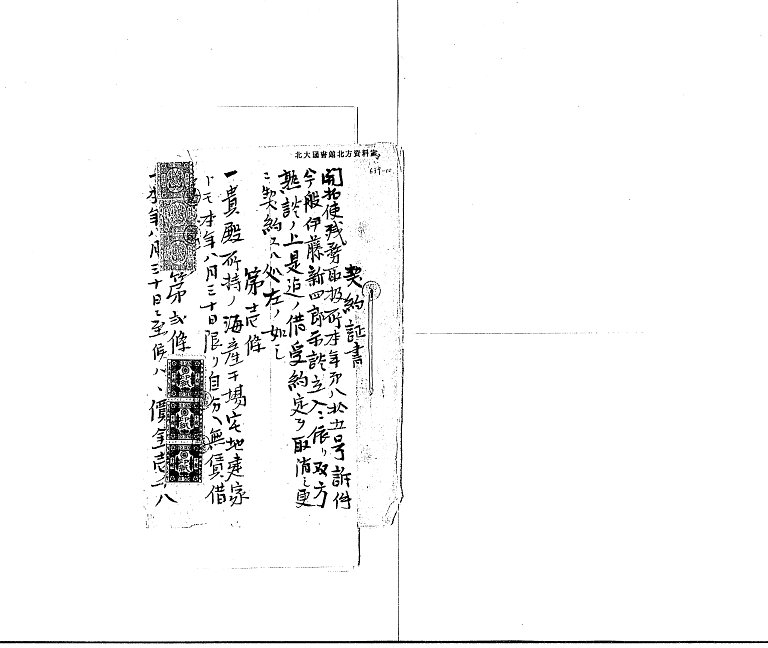 北大図書館北方資料室
契約証書
開拓使残務取扱所本年第八拾五号訴件
今般伊藤新四郎示談立入ニ依リ双方
熟談ノ上是迄ノ借受約定ヲ取消シ更
ニ契約スル処左ノ如シ
第壱條
一貴殿所持ノ海産干場宅地建家
本年八月三十日限リ自分ヘ無賃借
第弐條
一本年八月三十日ニ至候ハヽ價金壱千八